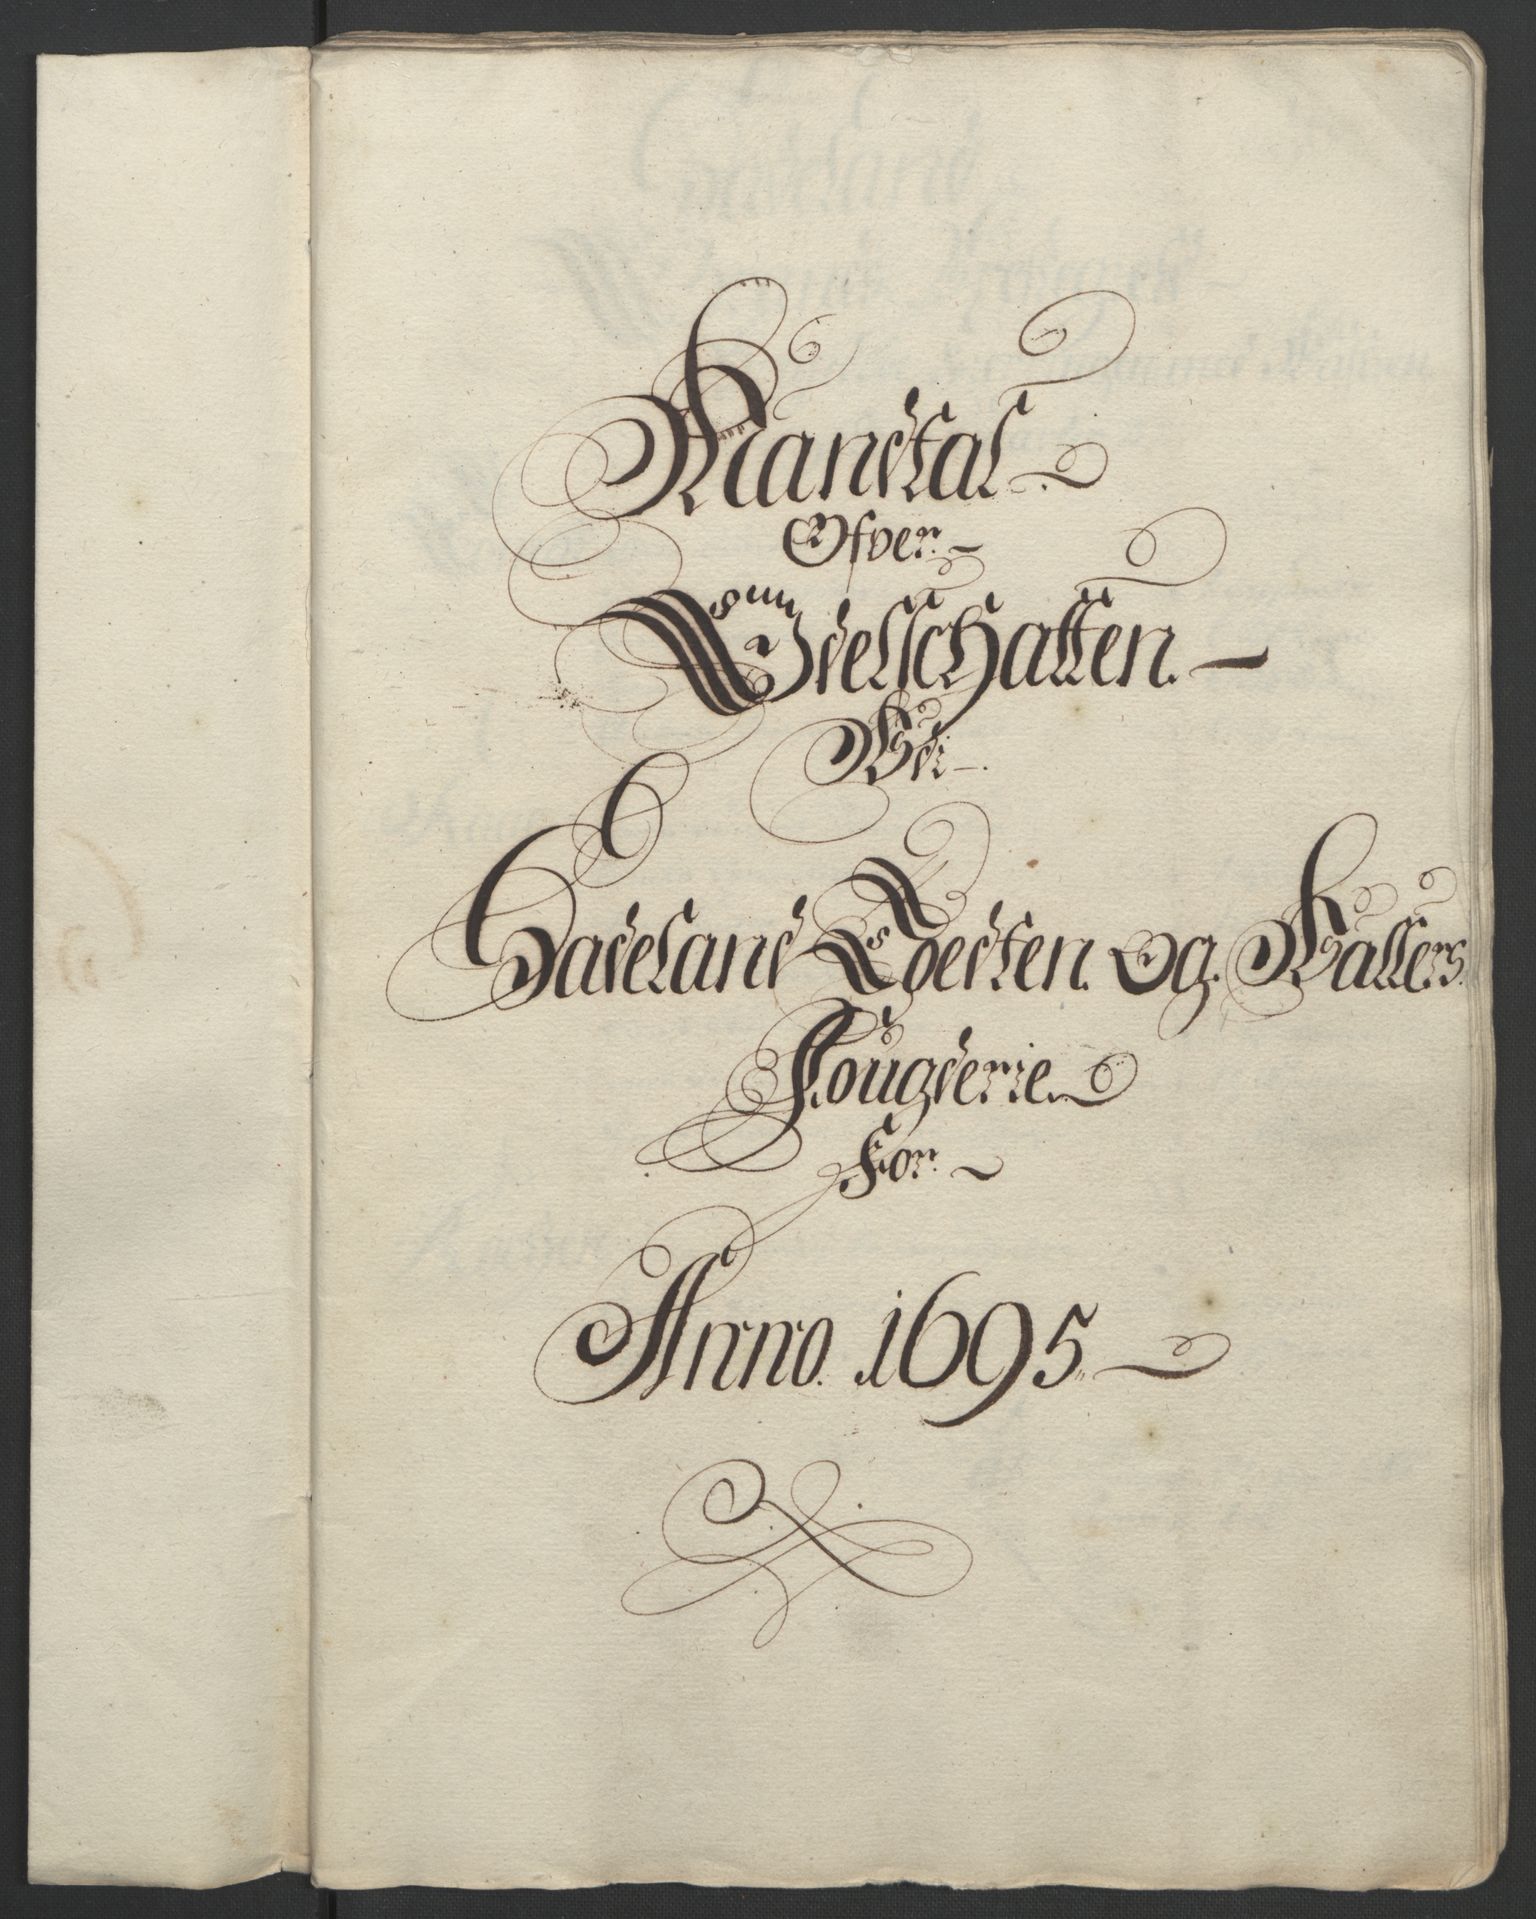 Mandtal
Ofver
Odelschatten
Vdi
Hadeland Toedten Og Valders
Fougderie
For
Anno 1695